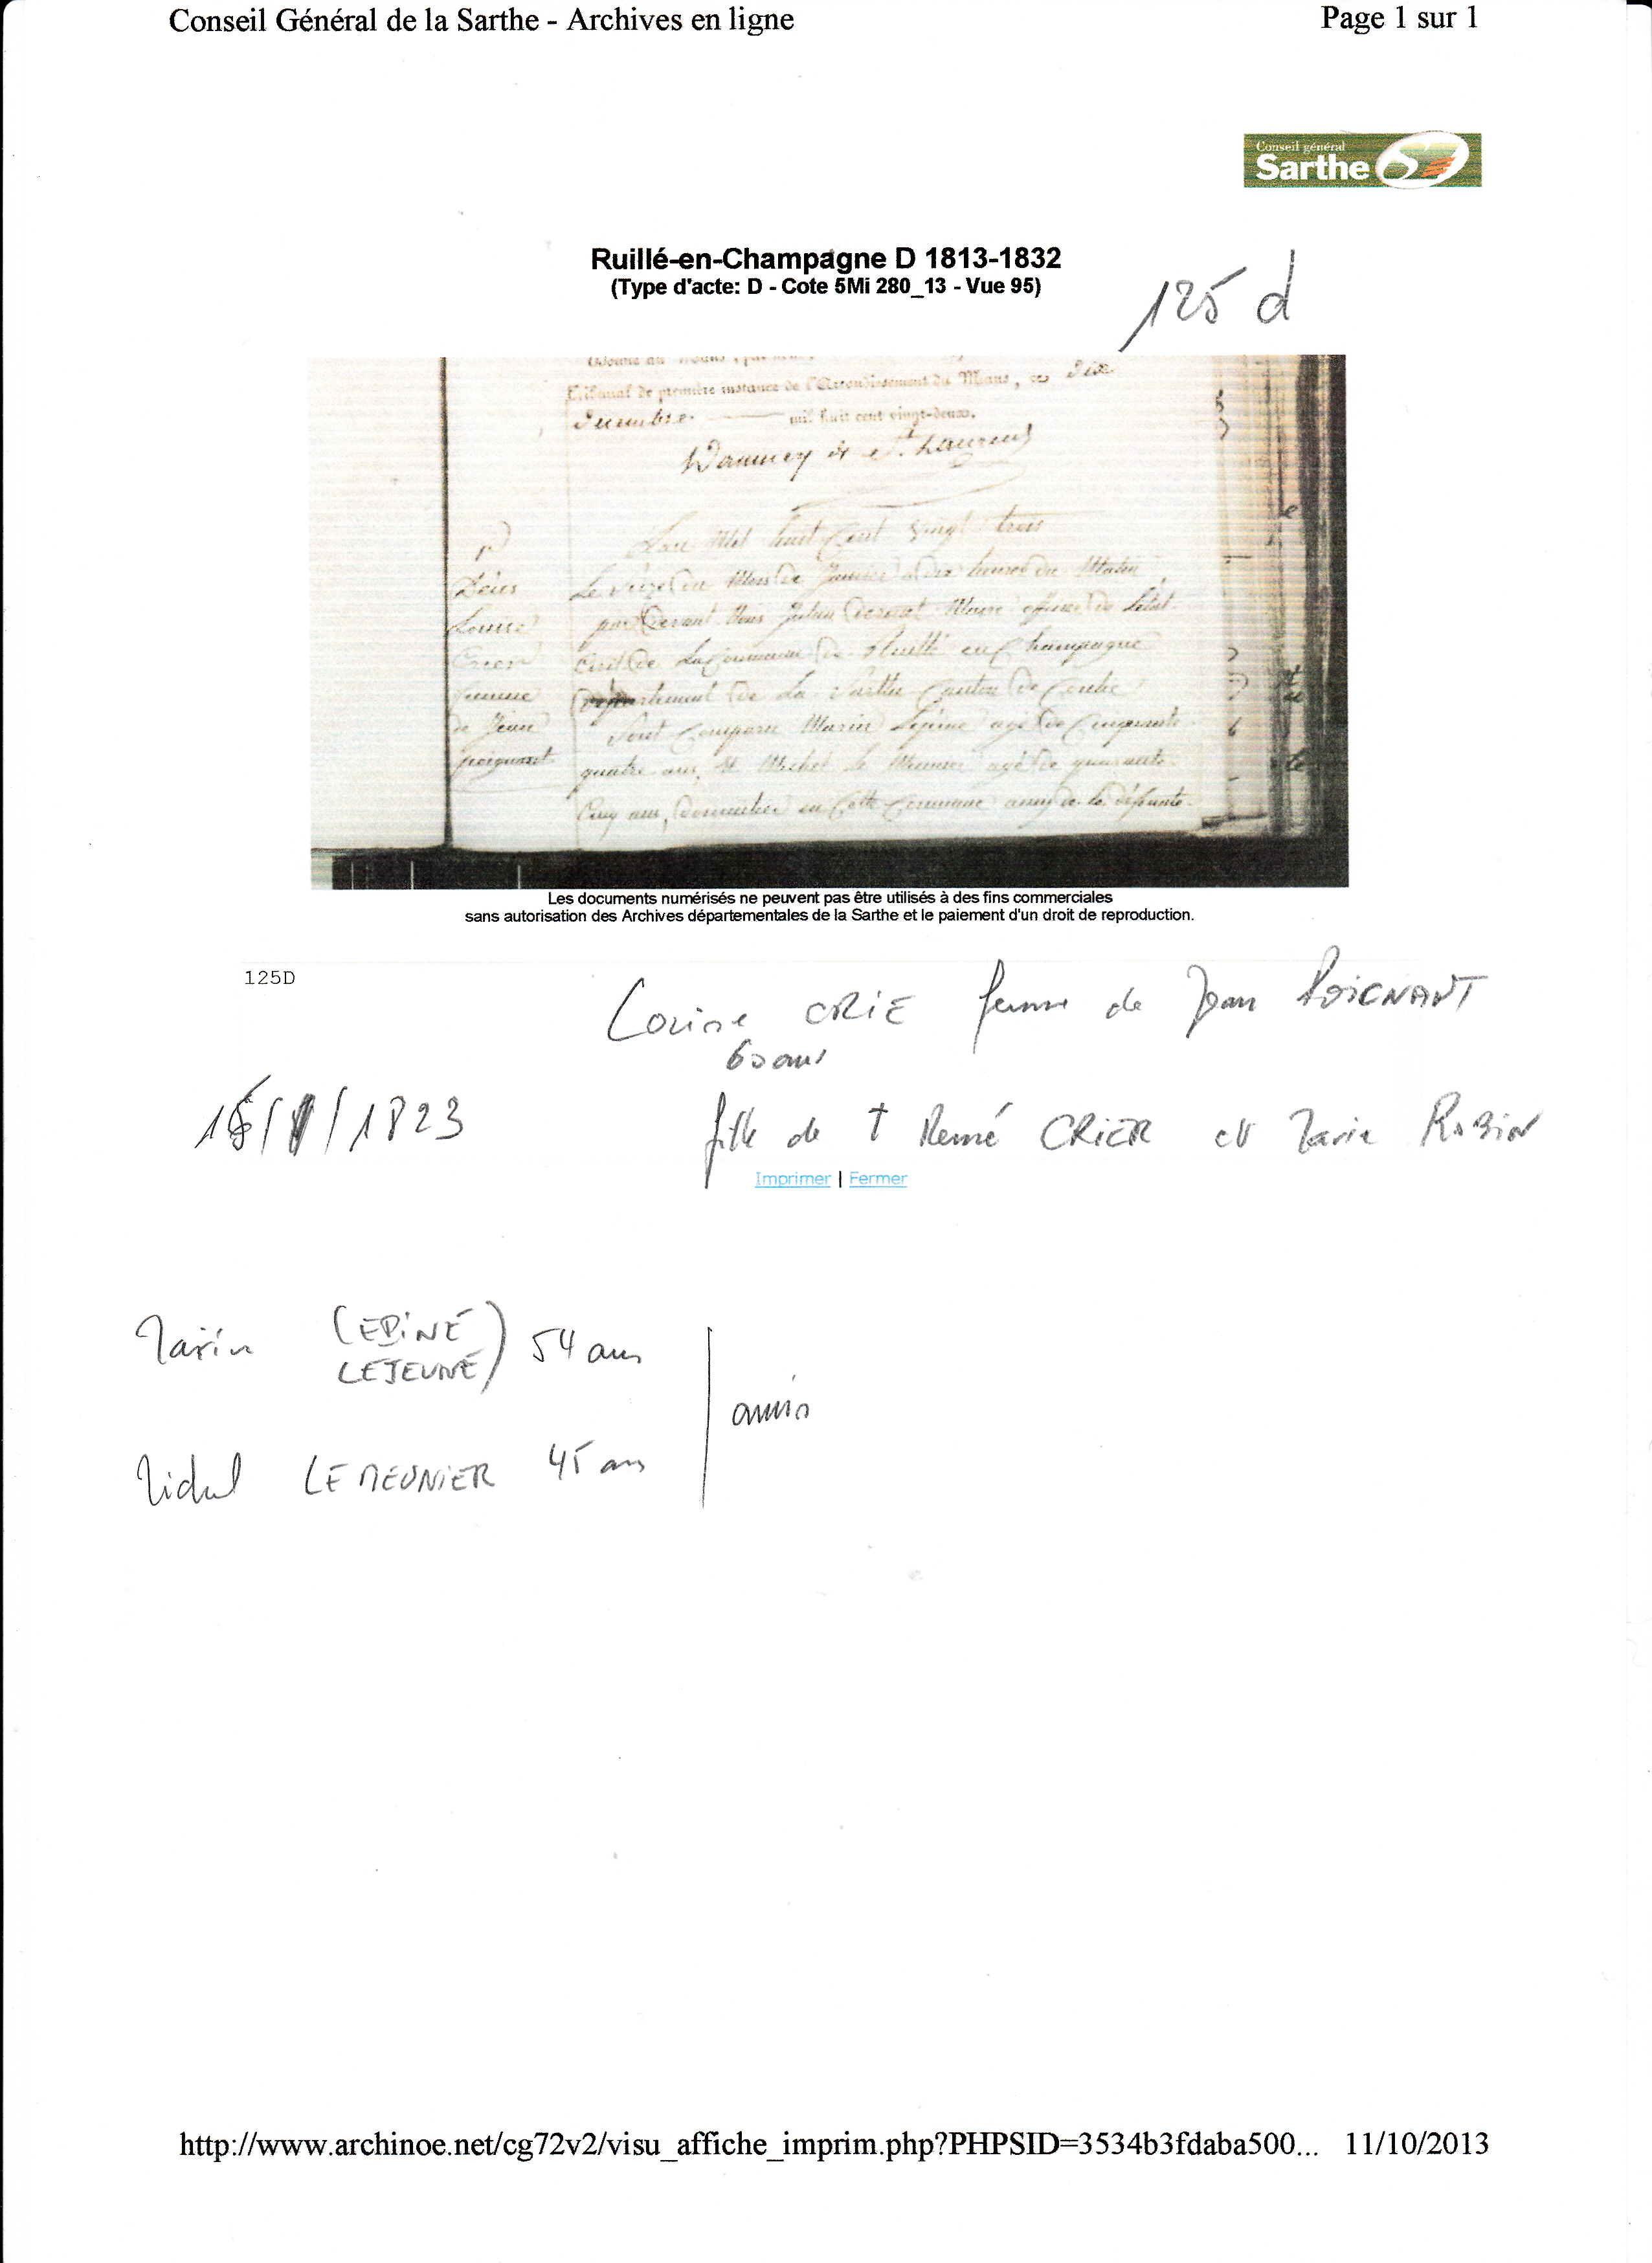 Conseil Général de la Sarthe - Archives en ligne Page 1 sur 1
Conseil général
Sarthe
Ruillé-en-Champagne D 1813-1832
(Type d'acte: D - Cote 5Mi 280_13 - Vue 95)
125 d
Tribunal de première instance de l'Arrondissement du Mans, ce dix
decembre mil huit cent vingt-deux.
Daumey de St. Laurent
Lan Mil huit Cent Vingt trois
Le seize du Mois de Janvier a dix heures du Matin
par devant Nous Julien Maire officier de Létat
Civil de La Commune de Ruillé en Champagne
departement de La Sarthe Canton de Conlie
Sont Comparu Marin Lepine agé de Cinquante
quatre ans, et Michel Le Meunier agé de quarante
Cinq ans, domicilier en Cette Commune amy de la défunte
Déces
Louise
Crier
femme
de Jean
poignant
Les documents numérisés ne peuvent pas être utilisés à des fins commerciales
sans autorisation des Archives départementales de la Sarthe et le paiement d'un droit de reproduction.
125D
Louise CRIE femme de Jean POIGNANT
60 ans
16/1/1823
fille de † René CRIER et Marie ROBIN
Imprimer | Fermer
Marin (EPINE
LEJEUNE) 54 ans
amis
Michel LE MEUNIER 45 ans
http://www.archinoe.net/cg72v2/visu_affiche_imprim.php?PHPSID=3534b3fdaba500... 11/10/2013